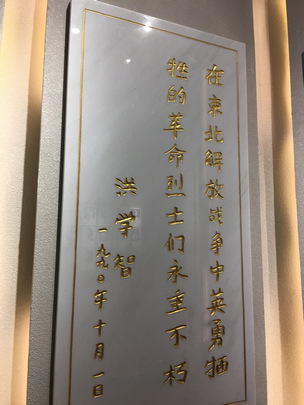 在京北解放战争中英勇牺
牲的革命烈士们永垂不朽
洪学智
一九九〇年十月一日